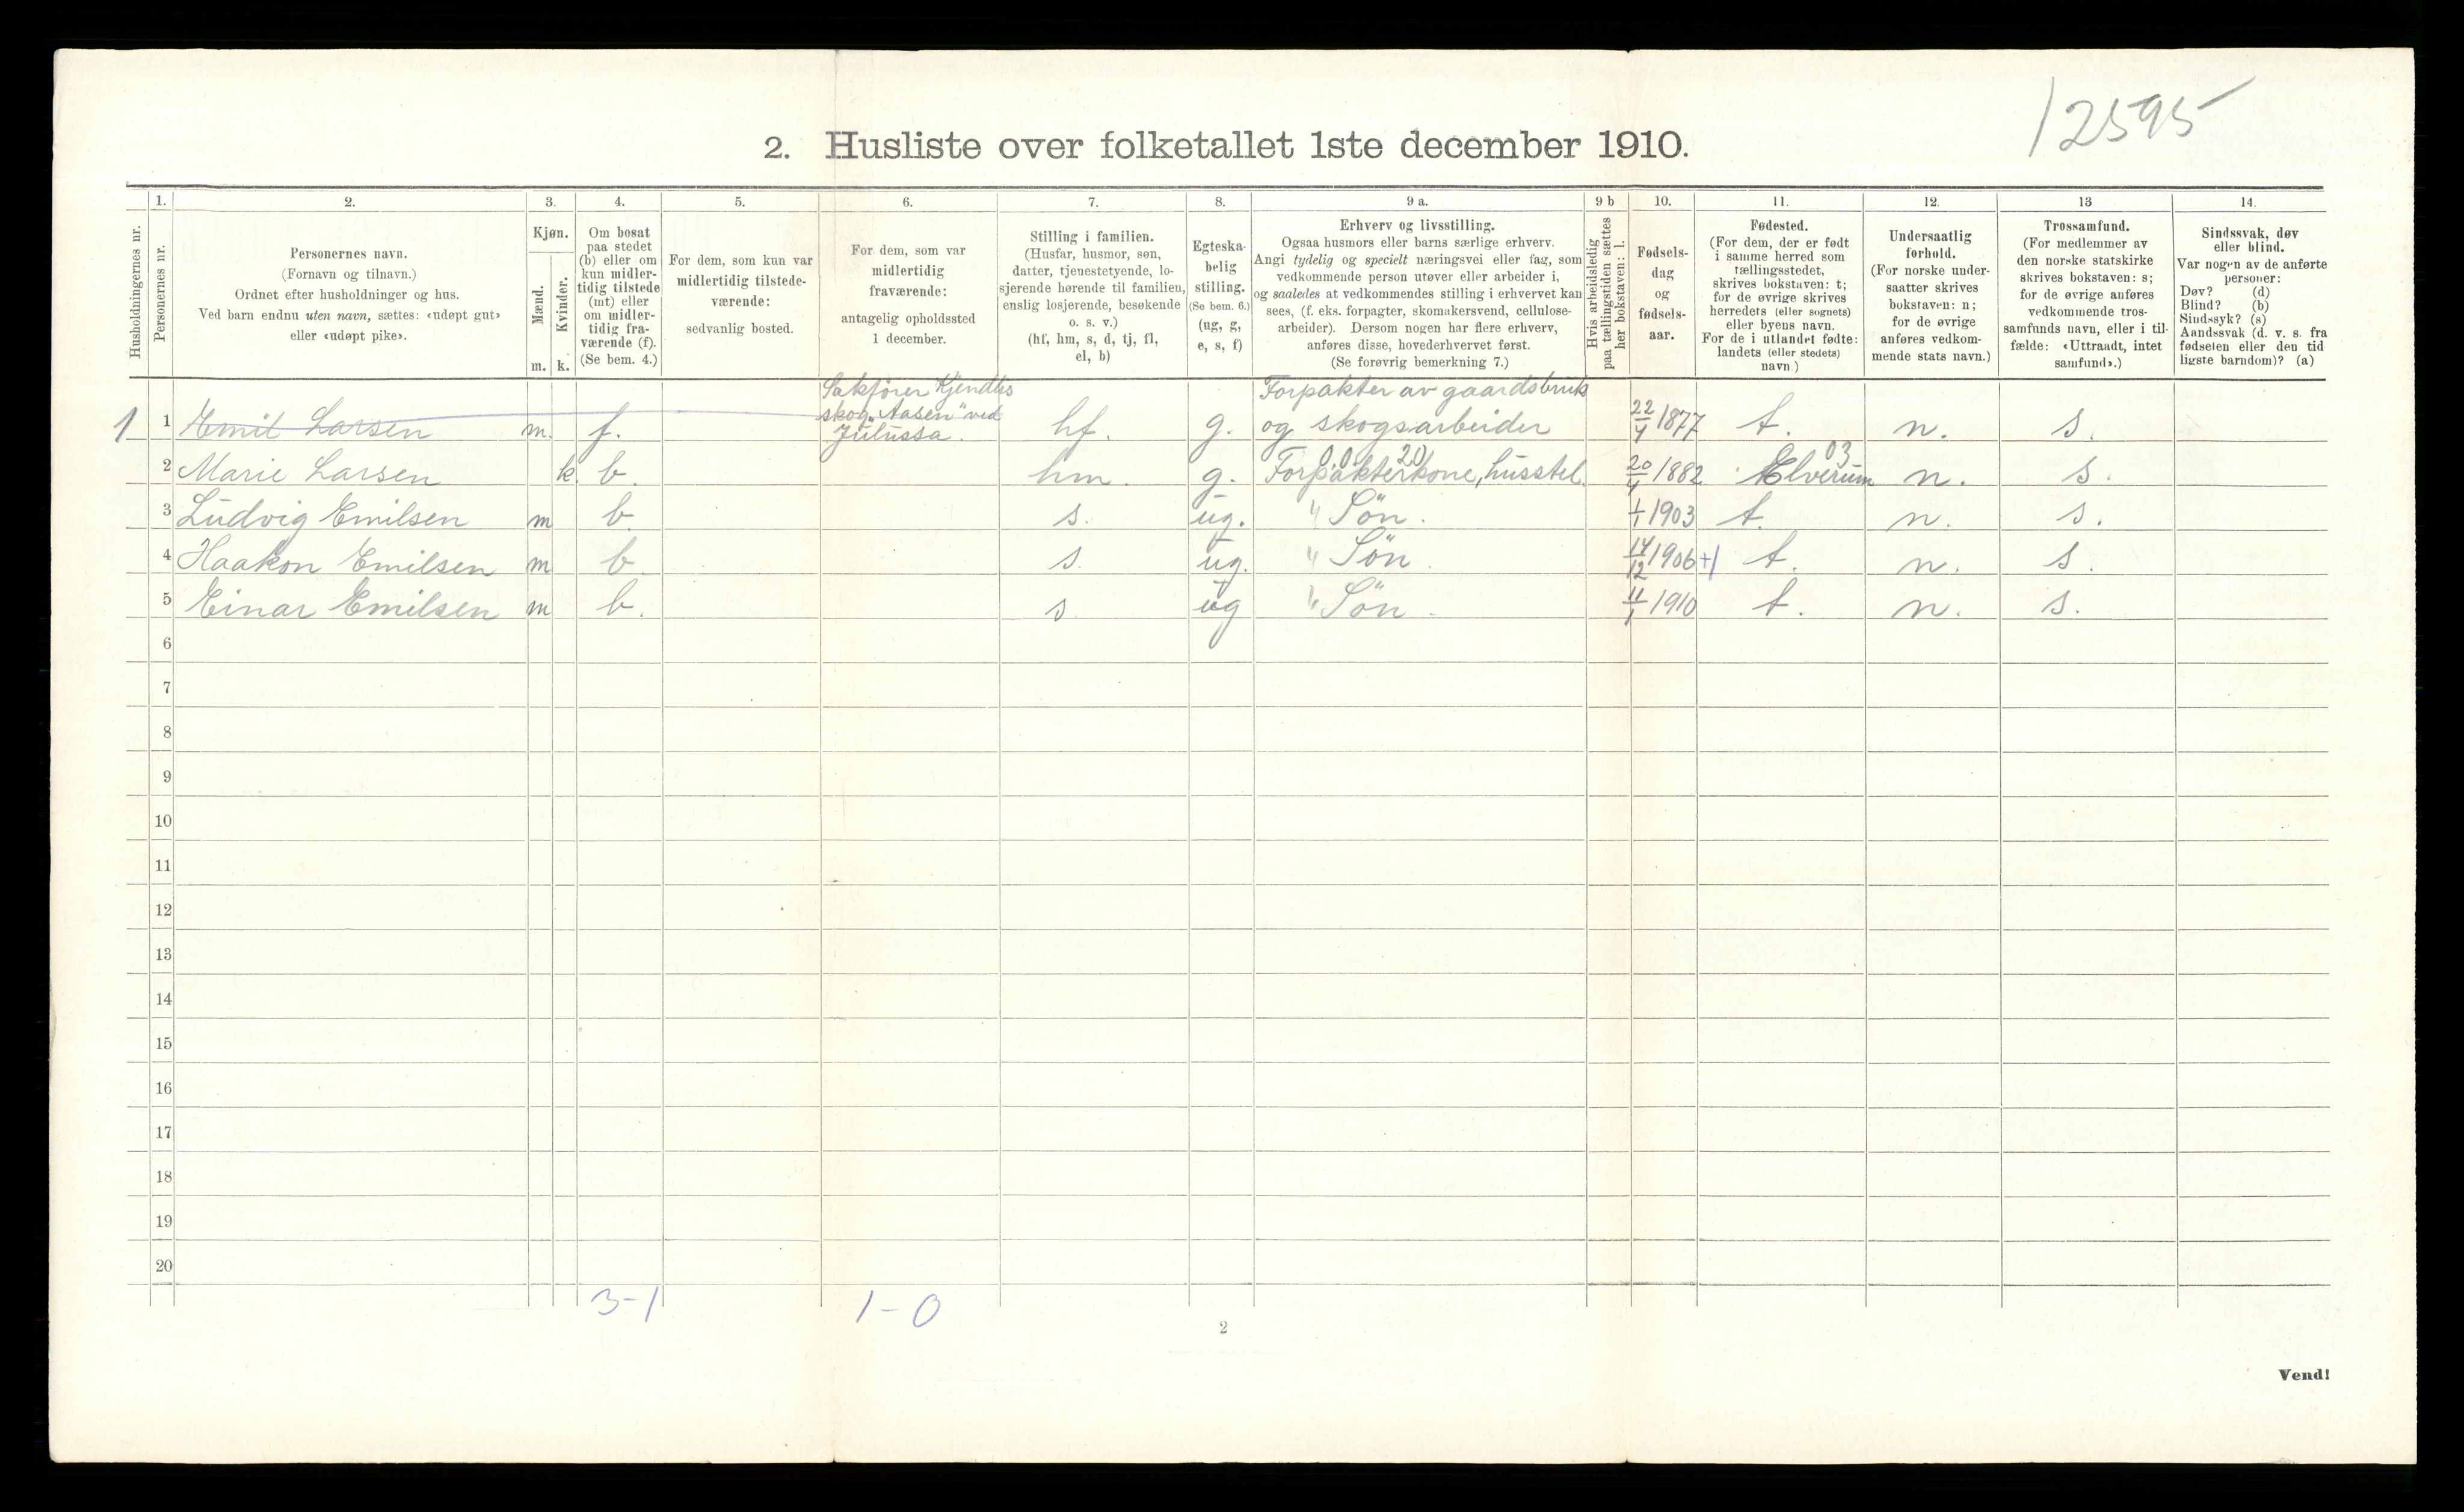 12595
2. Husliste over folketallet 1ste december 1910.
Husholdningernes nr.
1.
Personernes nr.
2.
Personernes navn.
(Fornavn og tilnavn.)
Ordnet efter husholdninger og hus.
Ved barn endnu uten navn, sættes: «udøpt gut»
eller «udøpt pike».
3.
Kjøn.
Mænd.
m.
Kvinder.
k.
4.
Om bosat
paa stedet
(b) eller om
kun midler-
tidig tilstede
(mt) eller
om midler-
tidig fra-
værende (f).
(Se bem. 4.)
5.
For dem, som kun var
midlertidig tilstede-
værende:
sedvanlig bosted.
6.
For dem, som var
midlertidig
fraværende:
antagelig opholdssted
1 december.
7.
Stilling i familien.
(Husfar, husmor, søn,
datter, tjenestetyende, lo-
sjerende hørende til familien,
enslig losjerende, besøkende
o. s. v.)
(hf, hm, s, d, tj, fl,
el, b)
8.
Egteska-
belig
stilling.
(Se bem. 6.)
(ug, g,
e, s, f)
9 a.
Erhverv og livsstilling.
Ogsaa husmors eller barns særlige erhverv.
Angi tydelig og specielt næringsvei eller fag, som
vedkommende person utøver eller arbeider i,
og saaledes at vedkommendes stilling i erhvervet kan
sees, (f. eks. forpagter, skomakersvend, cellulose-
arbeider). Dersom nogen har flere erhverv,
anføres disse, hovederhvervet først.
(Se forøvrig bemerkning 7.)
9 b
Hvis arbeidsledig
paa tællingstiden sættes
her bokstaven: l.
10.
Fødsels-
dag
og
fødsels-
aar.
11.
Fødested.
(For dem, der er født
i samme herred som
tællingsstedet,
skrives bokstaven: t;
for de øvrige skrives
herredets (eller sognets)
eller byens navn.
For de i utlandet fødte:
landets (eller stedets)
navn.)
12.
Undersaatlig
forhold.
(For norske under-
saatter skrives
bokstaven: n;
for de øvrige
anføres vedkom-
mende stats navn.)
13
Trossamfund.
(For medlemmer av
den norske statskirke
skrives bokstaven: s;
for de øvrige anføres
vedkommende tros-
samfunds navn, eller i til-
fælde: «Uttraadt, intet
samfund».)
14.
Sindssvak, døv
eller blind.
Var nogen av de anførte
personer:
Døv? (d)
Blind? (b)
Sindssyk? (s)
Aandssvak (d. v. s. fra
fødselen eller den tid
ligste barndom)? (a)
Sakfører Kjendlis
skog "Aasen" ved
Julussa.
Forpakter av gaardsbruk
1 1 Emil Larsen m. f. hf. g. og skogsarbeider 22/4 1877 t. n. s.
0.0. 20 03
2 Marie Larsen k. b. hm. g. Forpakterkone, husstel. 20/4 1882 Elverum n. s.
3 Ludvig Emilsen m b. s. ug. " Søn. 1/1 1903 t. n. s.
4 Haakon Emilsen m b. s. ug. " Søn. 14/12 1906 +1 t. n. s.
5 Einar Emilsen m b. s ug " Søn. 11/1 1910 t. n. s.
6
7
8
9
10
11
12
13
14
15
16
17
18
19
20
3-1 1-0
2
Vend!